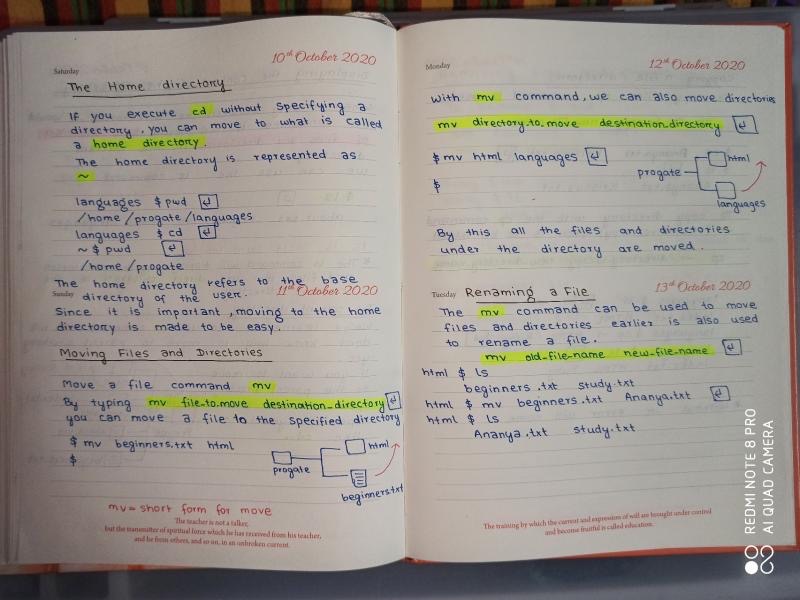 Saturday 10th October 2020
The Home directory
If you execute cd without specifying a
directory, you can move to what is called
a home directory.
The home directory is represented as
~
languages $ pwd ↵
/home/progate/languages
languages $ cd ↵
~ $ pwd ↵
/home/progate
The home directory refers to the base
Sunday 11th October 2020
directory of the user.
Since it is important, moving to the home
directory is made to be easy.
Moving Files and Directories
Move a file command mv
By typing mv file_to_move destination_directory ↵
you can move a file to the specified directory
$ mv beginners.txt html
$
progate
html
beginners.txt
mv = short form for move
The teacher is not a talker,
but the transmitter of spiritual force which he has received from his teacher,
and he from others, and so on, in an unbroken current.
Monday 12th October 2020
With mv command, we can also move directories
mv directory_to_move destination_directory ↵
$ mv html languages ↵
$
progate
html
languages
By this all the files and directories
under the directory are moved.
Tuesday 13th October 2020
Renaming a File
The mv command can be used to move
files and directories earlier is also used
to rename a file.
mv old_file_name new_file_name ↵
html $ ls
beginners.txt study.txt
html $ mv beginners.txt Ananya.txt ↵
html $ ls
Ananya.txt study.txt
The training by which the current and expression of will are brought under control
and become fruitful is called education.
REDMI NOTE 8 PRO
AI QUAD CAMERA